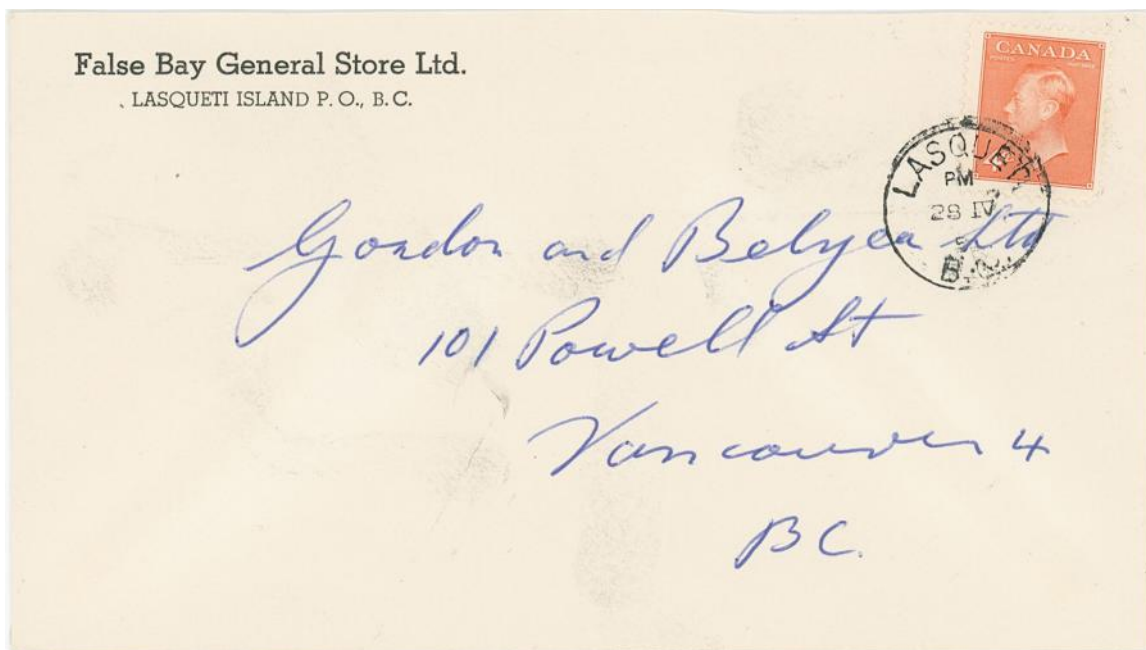 False Bay General Store Ltd.
LASQUETI ISLAND P. O., B. C.
CANADA
LASQUETI
PM
28 IV
B.C.
Gordon and Belyea Ltd
101 Powell St
Vancouver 4
BC.